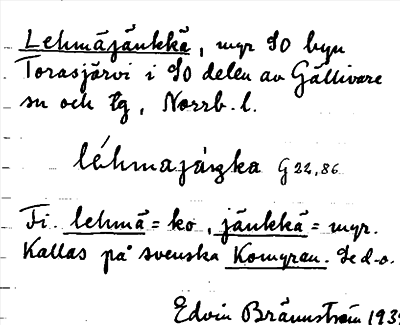 Lehmäjänkkä, myr SO byn
Torasjärvi i SO delen av Gällivare
sn och tg, Norrb. l.
léhmajáŋka G 22,86
Fi. lehmä = ko, jänkkä = myr.
Kallas på svenska Komyran. Se d.o.
Edvin Brännström 193